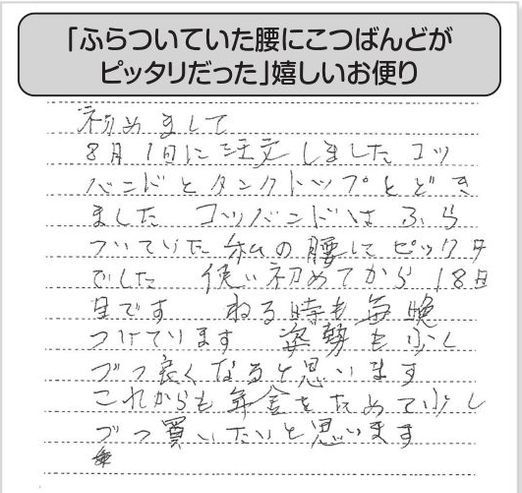 「ふらついていた腰にこつばんどが
ピッタリだった」嬉しいお便り
初めまして
8月1日に注文しましたコツ
バンドとタンクトップとどき
ました コツバンドは ふら
ついていた 私の腰に ピッタ
でした 使い初めてから 18日
目です ねる時も毎晩
つけています 姿勢も少し
づつ良くなると思います
これからも年金をためて少し
づつ買いたいと思います